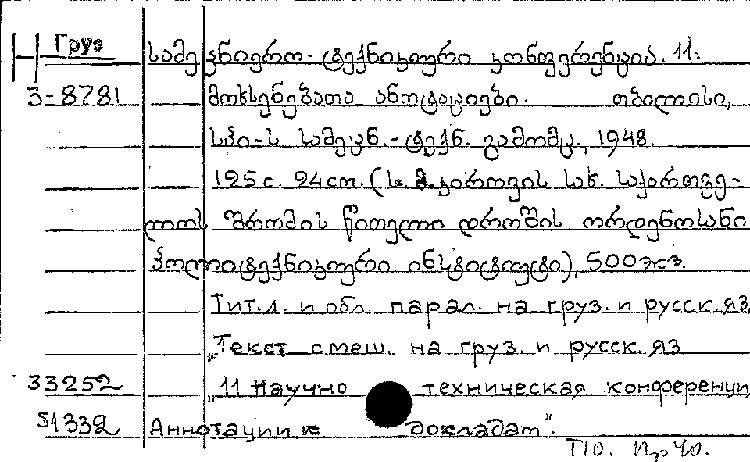 Груз სამეცნიერო-ტექნიკური კონფერენცია. 11.
3-8781 მოხსენებათა ანოტაციები. თბილისი,
სპი-ს სამეცნ.-ტექნ. გამომც., 1948.
125 с. 24 см. (ს. მ. კიროვის სახ. საქართვე-
ლოს შრომის წითელი დროშის ორდენოსანი
პოლიტექნიკური ინსტიტუტი), 500 экз.
Тит. л. и обл. парал. на груз. и русск. яз
Текст смеш. на груз. и русск. яз
33252 "11 Научно техническая конференци
51332 Аннотации к докладам".
ПО. Пр 40.